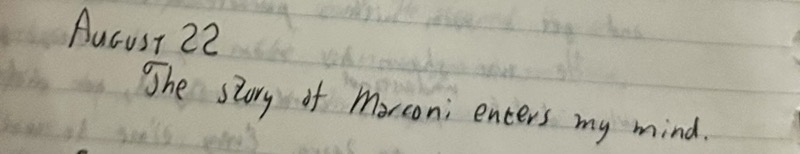 August 22
The story of Marconi enters my mind.